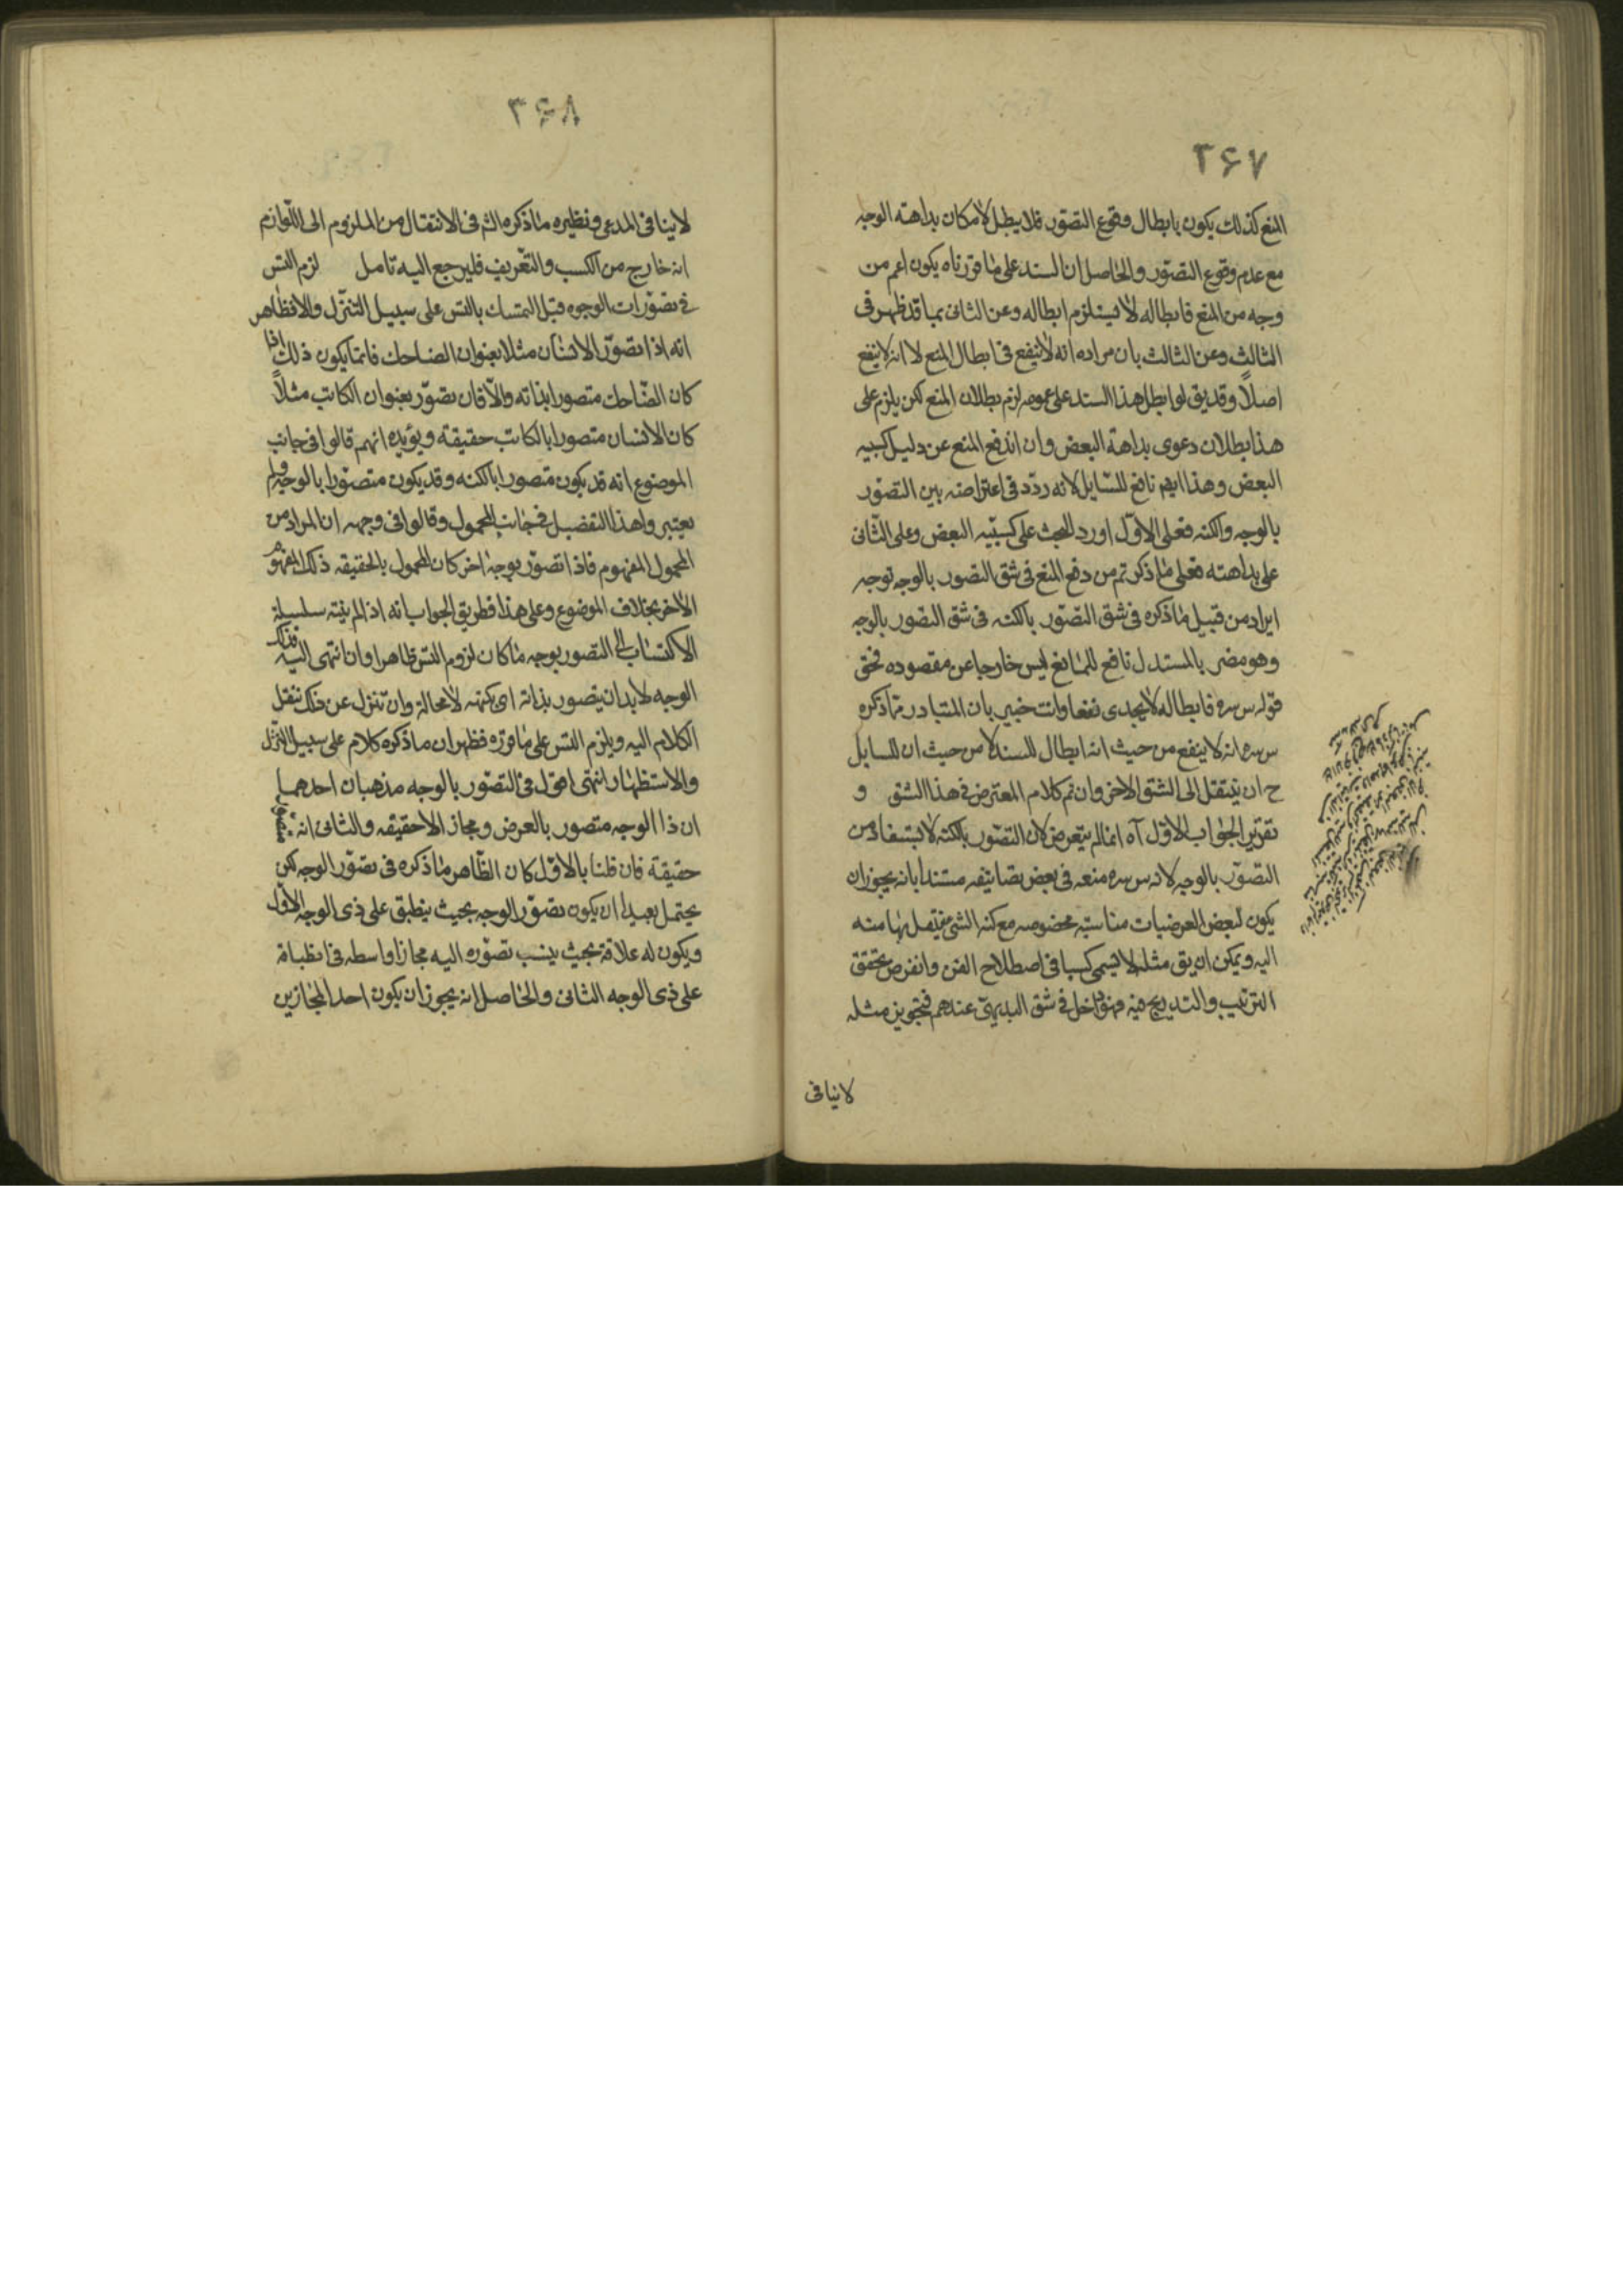 ۳۶۷
المنع كذلك يكون بابطال وقوع التصور فلا يبطل لامكان بداهته الوجه
مع عدم وقوع التصور والحاصل ان السند على ما قررناه يكون اعم من
وجه من المنع فابطاله لا يستلزم ابطاله وعن الثانى بما قد ظهر فى
الثالث وعن الثالث بان مراده انه لا ينفع فى ابطال المنع لا انه لا ينفع
اصلاً وقد يق لو ابطل هذا السند على عمومه لزم بطلان المنع لكن يلزم على
هذا بطلان دعوى بداهة البعض وان اندفع المنع عن دليل كسبيه
البعض وهذا ايضا نافع للسايل لانه ردّد فى اعتراضه بين التصور
بالوجه والكنه فعلى الاوّل اورد البحث على كسبيّه البعض وعلى الثانى
على بداهته فعلى ما ذكر تم من دفع المنع فى شق التصور بالوجه توجه
ايراد من قبيل ما ذكره فى شق التصور بالكنه فى شق التصور بالوجه
وهو مضر بالمستدل نافع للمانع ليس خارجا عن مقصوده فحق
قوله س سره فابطاله لا يجدى نفعا وانت خبير بان المتبادر مما ذكره
س سره انه لا ينفع من حيث انه ابطال للسند لا من حيث ان للسايل
ح ان ينتقل الى الشق الاخر وان تم كلام المعترض فى هذا الشق و
تقرير الجواب الاوّل آه انما لم يتعرض لان التصور بالكنه لا يستفاد من
التصوّر بالوجه لانه س سره منعه فى بعض تصانيفه مستندا بانه يجوز ان
يكون لبعض العرضيات مناسبة مخصوصه مع كنه الشئ فينتقل بها منه
اليه ويمكن ان يق مثله لا يسمى كسبا فى اصطلاح الفن وانفرض تحقق
الترتيب والتدريج فيه فهو داخل فى شق البديهى عندهم فتجويز مثله
لا ينافى
۳۶۸
لا ينافى المدعى ونظيره ما ذكره ماثم فى الانتقال من الملزوم الى اللوازم
انه خارج من الكسب والتعريف فليرجع اليه تامل لزم التس
فى تصوّرات الوجوه قيل التمسك بالتس على سبيل التنزّل والا فظاهر
انه اذا تصوّر الانسان مثلا بعنوان الضاحك فانما يكون ذلك اذا
كان الضّاحك متصورا بذاته والّا فان تصوّر بعنوان الكاتب مثلاً
كان الانسان متصورا بالكاتب حقيقة ويؤيده انهم قالوا فى جانب
الموضوع انه قد يكون متصورا بالكنه وقد يكون متصوّرا بالوجه ولم
يعتبر واهذا التفصيل فى جانب المحمول وقالوا فى وجهه ان المراد من
المحمول المفهوم فاذا تصوّر بوجه اخر كان المحمول بالحقيقه ذلك المفهوم
الاخر بخلاف الموضوع وعلى هذا فطريق الجواب انه اذا لم ينته سلسلة
الاكتساب الى التصور بوجه ما كان لزوم التس ظاهرا وان انتهى اليه فذلك
الوجه لا بد ان يتصور بذاته اى بكنهه لا محالة وان تنزل عن ذلك ننقل
الكلام اليه ويلزم التس على ما قرره فظهر ان ما ذكره كلام على سبيل التنزّل
والاستظهار انتهى اقول فى التصوّر بالوجه مذهبان احدهما
ان ذا الوجه متصور بالعرض ومجازا لا حقيقه والثانى انه متصور
حقيقة فان قلنا بالاوّل كان الظّاهر ما ذكره فى تصوّر الوجه لكن
يحتمل بعيدا ان يكون تصوّر الوجه بحيث ينطبق على ذى الوجه الاوّل
ويكون له علاقة بحيث ينسب تصوّره اليه مجازا واسطه فى انطباقه
على ذى الوجه الثانى والحاصل انه يجوز ان يكون احد المجازين